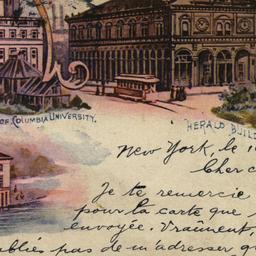 OF COLUMBIA UNIVERSITY.
HERALD BUILD
New York, le 1
Cher c
Je te remercie
pour la carte que
envoyée. Vraiment,
ublies pas de m'adresser qu